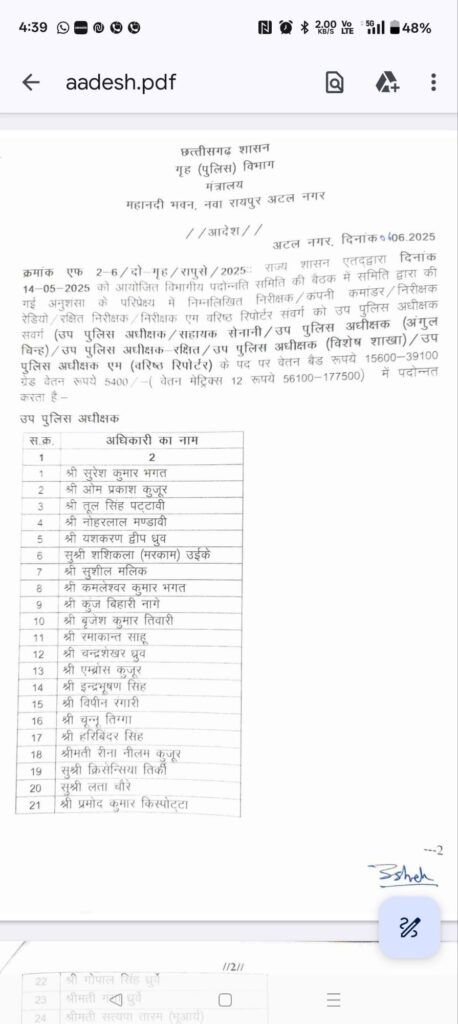 4:39
2.00 KB/S
Vo LTE
5G
48%
aadesh.pdf
छत्तीसगढ़ शासन
गृह (पुलिस) विभाग
मंत्रालय
महानदी भवन, नवा रायपुर अटल नगर
//आदेश//
अटल नगर, दिनांक 06.2025
क्रमांक एफ 2-6/दो-गृह/रापुसे/2025:: राज्य शासन एतद्द्वारा दिनांक
14-05-2025 को आयोजित विभागीय पदोन्नति समिति की बैठक में समिति द्वारा की
गई अनुशंसा के परिप्रेक्ष्य में निम्नलिखित निरीक्षक/कंपनी कमांडर/निरीक्षक
रेडियो/रक्षित निरीक्षक/निरीक्षक एम वरिष्ठ रिपोर्टर संवर्ग को उप पुलिस अधीक्षक
संवर्ग (उप पुलिस अधीक्षक/सहायक सेनानी/उप पुलिस अधीक्षक (अंगुल
चिन्ह)/उप पुलिस अधीक्षक-रक्षित/उप पुलिस अधीक्षक (विशेष शाखा)/उप
पुलिस अधीक्षक एम (वरिष्ठ रिपोर्टर) के पद पर वेतन बैंड रूपये 15600-39100
ग्रेड वेतन रूपये 5400/-(वेतन मेट्रिक्स 12 रूपये 56100-177500) में पदोन्नत
करता है –
उप पुलिस अधीक्षक
स.क्र. अधिकारी का नाम
1 2
1 श्री सुरेश कुमार भगत
2 श्री ओम प्रकाश कुजूर
3 श्री तूल सिंह पट्टावी
4 श्री नोहरलाल मण्डावी
5 श्री यशकरण द्वीप ध्रुव
6 सुश्री शशिकला (मरकाम) उईके
7 श्री सुशील मलिक
8 श्री कमलेश्वर कुमार भगत
9 श्री कुंज बिहारी नागे
10 श्री बृजेश कुमार तिवारी
11 श्री रमाकान्त साहू
12 श्री चन्द्रशेखर ध्रुव
13 श्री एम्ब्रोस कुजूर
14 श्री इन्द्रभूषण सिंह
15 श्री विपीन रंगारी
16 श्री चून्नू तिग्गा
17 श्री हरिबिंदर सिंह
18 श्रीमती रीना नीलम कुजूर
19 सुश्री क्रिसेन्सिया तिर्की
20 सुश्री लता चौरे
21 श्री प्रमोद कुमार किस्पोट्टा
---2
//2//
22 श्री गोपाल सिंह धुर्वे
23 श्रीमती धुर्वे
24 श्रीमती सत्यपा तारम (भूआर्य)